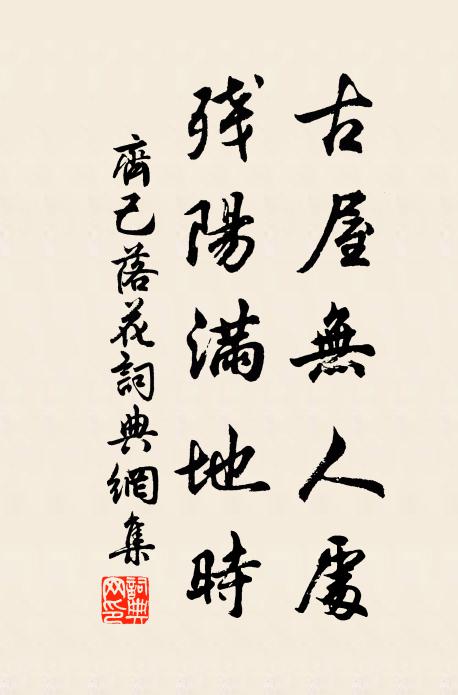 古屋無人處
殘陽滿地時
齊己落花詞典網集
詞典網印